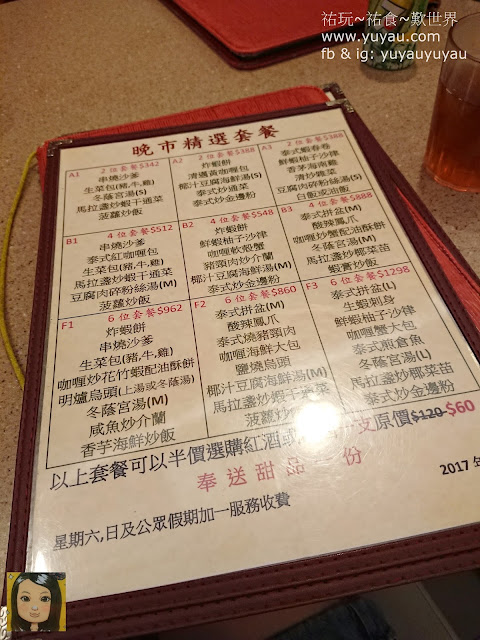 祐玩~祐食~歎世界
www.yuyau.com
fb & ig: yuyauyuyau
晚市精選套餐
A1 2位套餐$342
串燒沙爹
生菜包(豬,牛,雞)
冬蔭宮湯(S)
馬拉盞炒蝦干通菜
菠蘿炒飯
A2 2位套餐$388
炸蝦餅
清邁黃咖喱包
椰汁豆腐海鮮湯(S)
泰式炒通菜
泰式炒金邊粉
A3 2位套餐$388
泰式蝦春卷
鮮蝦柚子沙律
香茅海南雞
清炒雜菜
豆腐肉碎粉絲湯(S)
白飯或油飯
B1 4位套餐$512
串燒沙爹
泰式紅咖喱包
生菜包(豬,牛,雞)
馬拉盞炒蝦干通菜
豆腐肉碎粉絲湯(M)
菠蘿炒飯
B2 4位套餐$548
炸蝦餅
鮮蝦柚子沙律
咖喱軟殼蟹
豬頸肉炒介蘭
椰汁豆腐海鮮湯(M)
泰式炒金邊粉
B3 4位套餐$888
泰式拼盆(M)
酸辣鳳爪
咖喱炒蟹配油酥餅
冬蔭宮湯(M)
馬拉盞炒椰菜苗
蝦膏炒飯
F1 6位套餐$962
炸蝦餅
串燒沙爹
生菜包(豬,牛,雞)
咖喱炒花竹蝦配油酥餅
明爐烏頭(上湯或冬蔭湯)
冬蔭宮湯(M)
咸魚炒介蘭
香芋海鮮炒飯
F2 6位套餐$860
泰式拼盆(M)
酸辣鳳爪
泰式燒豬頸肉
咖喱海鮮大包
鹽燒烏頭
椰汁豆腐海鮮湯(M)
馬拉盞炒蝦干通菜
菠蘿炒飯
F3 6位套餐$1298
泰式拼盆(L)
生蝦刺身
鮮蝦柚子沙律
咖喱蟹大包
泰式煎倉魚
冬蔭宮湯(L)
馬拉盞炒椰菜苗
泰式炒金邊粉
以上套餐可以半價選購紅酒或 支原價$120 $60
奉送甜品一份
2017
星期六,日及公眾假期加一服務收費